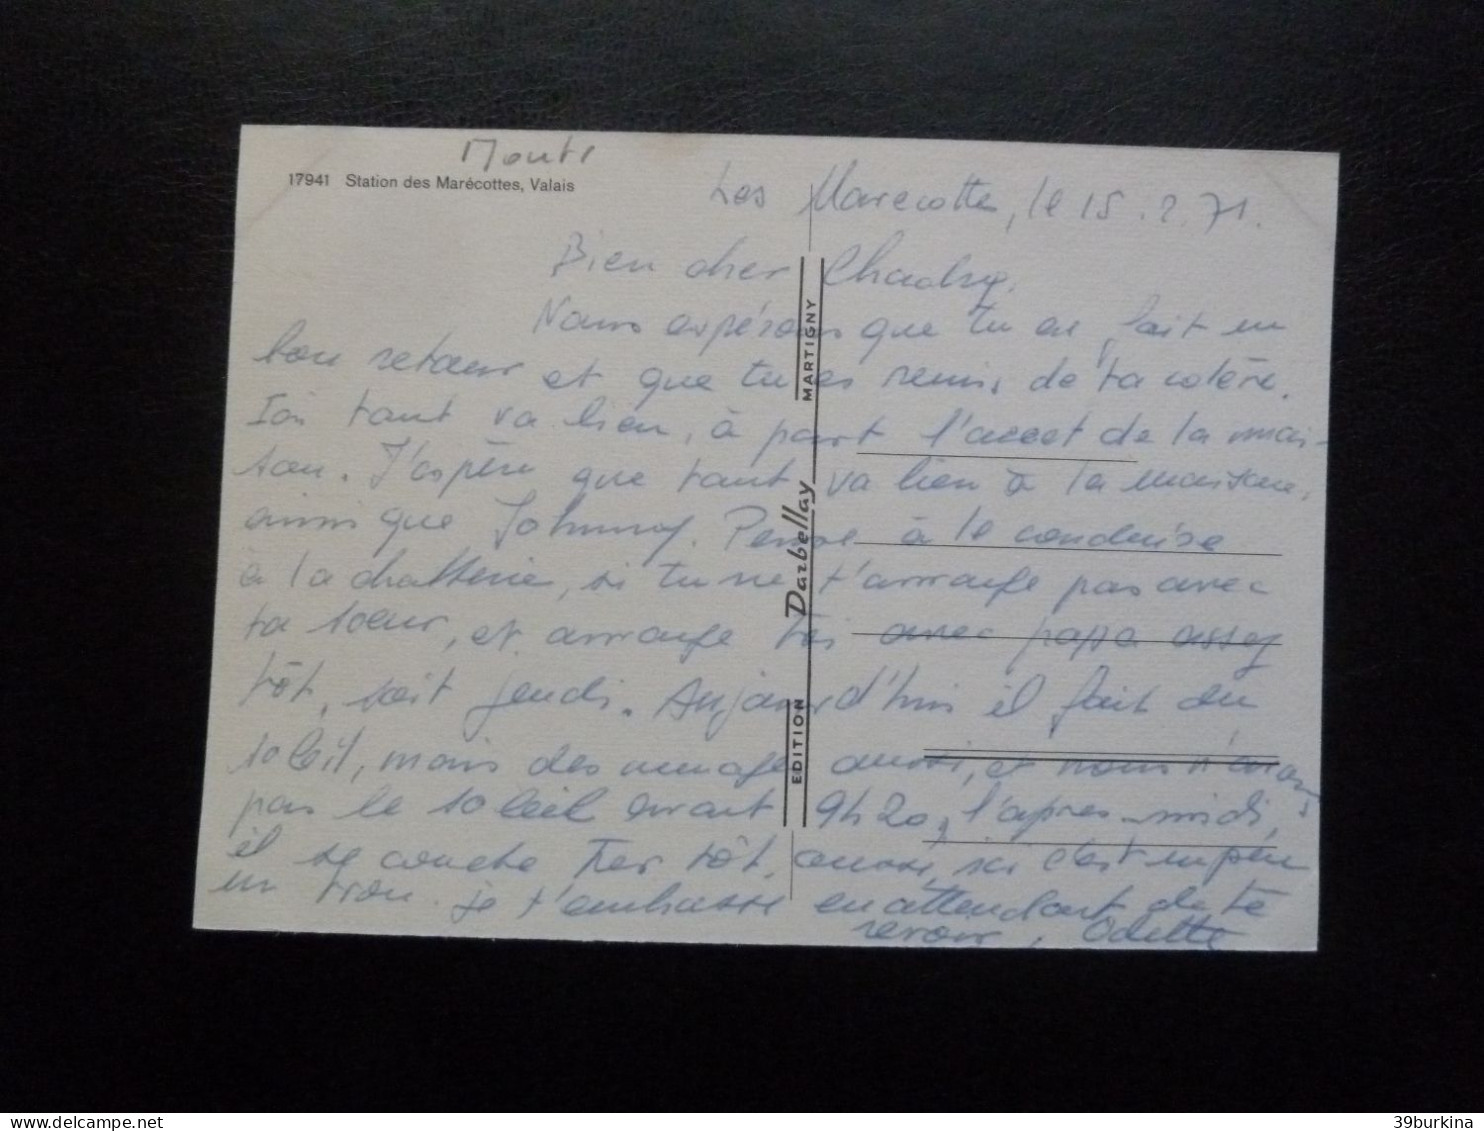 17941 Station des Marécottes, Valais
Les Marecottes, le 15.2.71.
Bien cher
Nous espérons que tu as fait un
bon retour et que tu es remis de ta colère.
Ici tout va bien, à part l'accet de la mai-
son. J'espère que tout va bien à la maison,
ainsi que Johnny. Pense à le conduire
à la chatterie, si tu ne t'arrange pas avec
ta soeur, et arrange toi avec papa assez
tôt, soit jeudi. Aujourd'hui il fait du
soleil, mais des nuages aussi, et nous n'avons
pas le soleil avant 9h20, l'après-midi,
il se couche très tôt, aussi, ici c'est un peu
un trou. Je t'embrasse en attendant de te
revoir, Odette
EDITION Darbellay MARTIGNY
39burkina